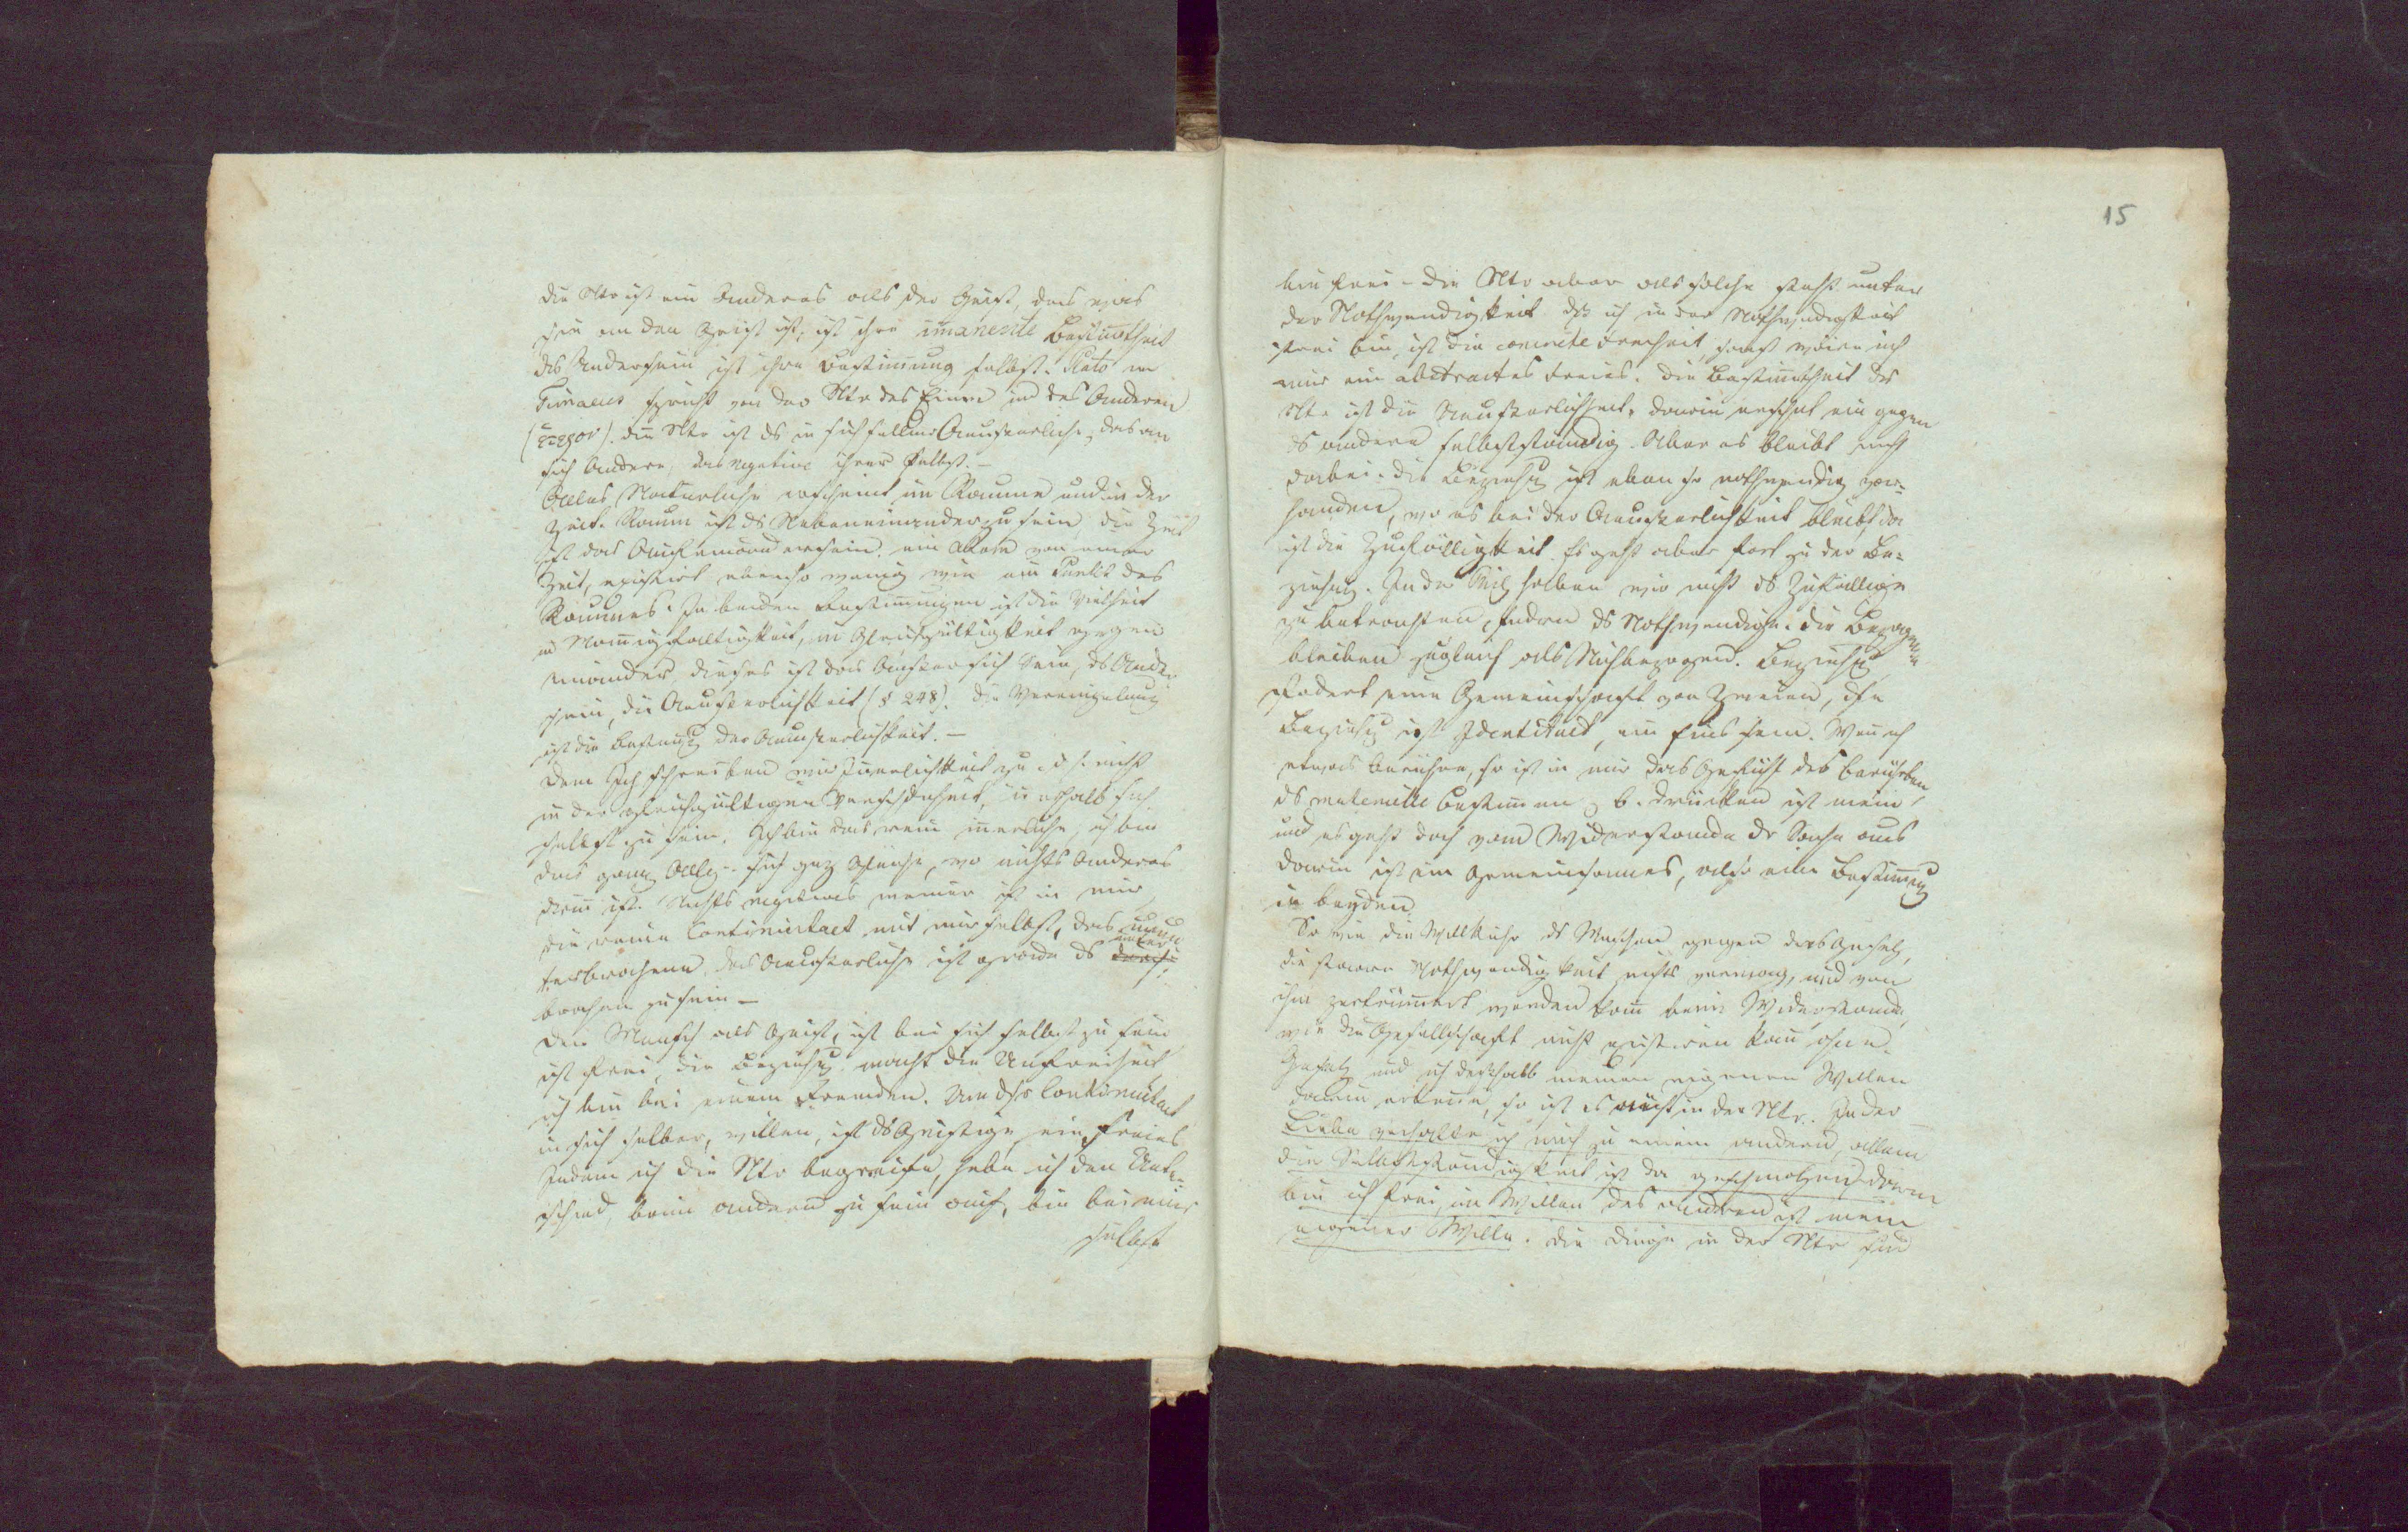 die Ntr ist ein Anderes als der Geist, das was
sie an den Geist ist, ist ihre imanente Bestimtheit
das Anderssein ist ihre Bestimung selbst. Plato im
Timaeus spricht von der Ntr des Einen und des Anderen
(ετερον). die Ntr ist ds in sich selbst Aeusserliche, das an
sich Andere, das negative ihrer selbst. –
Alles Natürliche erscheint im Raume und in der
Zeit. Raum ist ds Nebeneinander zu sein, die Zeit
ist das Nacheinandersein. ein Atom von einer
Zeit, existirt ebenso wenig wie ein Punkt des
Raumes. In beiden Bestimungen ist die Vielheit
in Manigfaltigkeit, in Gleichgültigkeit gegen
einander, dieses ist das Ausser sich Sein, ds Anders
sein, die Aeusserlichkeit (§ 248). die Vereinzelung
ist die Bestimg der Aeusserlichkeit. –
Dem Ich schreiben wir Inerlichkeit zu. d. h. nicht
in der gleichgültigen Verschiedenheit, innerhalb sich
selbst zu sein. Ich bin das rein inerliche, ich bin
das ganz Allg. sich ganz Gleiche, wo nichts Anderes
darin ist. Nichts negatives meiner ist in mir
die reine Continuitaet mit mir selbst, das unun
terbrochene, das Aeusserliche ist grade ds unter
brochen zu sein –
Der Mensch als Geist, ist bei sich selbst zu sein
ist frei, die Beziehg macht die Unfreiheit
ich bin bei einem Fremden. Um dsr Continuitaet
in sich selber, willen, ist ds Geistige ein freies
Indem ich die Ntr begreife, hebe ich den Unter
schied, beim andern zu sein auf, bin bei mir
selbst
15
bin frei – die Ntr aber als solche steht unter
der Nothwendigkeit dß ich in der Nothwendigkeit
frei bin, ist die concrete Freiheit, sonst wäre ich
nur ein abstractes Freies. die Bestimtheit der
Ntr ist die Aeusserlichkeit, darin erscheint ein gegen
ds andere selbstständig. Aber es bleibt nicht
dabei. die Beziehg ist eben so nothwendig vor-
handen, wo es bei der Aeusserlichkeit bleibt, da
ist die Zufälligkeit. Es geht aber fort zu der Be-
ziehung. In der Phil haben wir nicht ds Zufällige
zu betrachten, sondern ds Nothwendige. die Bezogenen
bleiben zugleich als Nichbezogene. Beziehg
fodert eine Gemeinschaft von Zweien, die
Beziehg ist Identitaet, ein Eins sein. Wenn ich
etwas berühre, so ist in mir das Gefühl des berührten
ds materielle Bestimen z. b. drücken ist mein,
und es geht doch vom Widerstande der Sache aus
darin ist ein Gemeinsames, also eine Bestimg
in beyden
So wie die Willkühr ds Menschen gegen das Gesetz,
die starre Nothwendigkeit nichts vermag, und von
ihm zertrümert werden kann beim Widerstande,
wie die Gesellschaft nicht existiren kann ohne
Gesetz und ich deßhalb meinen eigenen Willen
darin erkene, so ist es nicht in der Ntr. In der
Liebe verhalte ich mich zu einem andern, allein
die Selbstständigkeit ist da geschmolzen, darin
bin ich frei, im Willen des andren ist mein
eigener Wille. Die Dinge in der Ntr sind